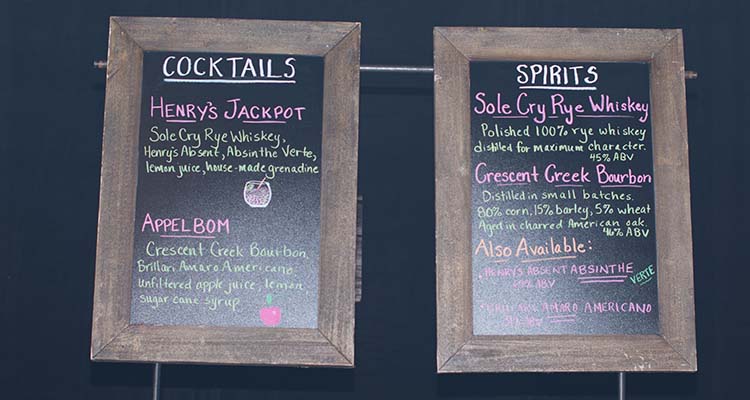 COCKTAILS
HENRY'S JACKPOT
Sole Cry Rye Whiskey,
Henry's Absent, Absinthe Verte,
lemon juice, house-made grenadine
APPELBOM
Crescent Creek Bourbon
Brillari Amaro Americano
unfiltered apple juice, lemon,
sugar cane syrup
SPIRITS
Sole Cry Rye Whiskey
Polished 100% rye whiskey
distilled for maximum character.
45% ABV
Crescent Creek Bourbon
Distilled in small batches.
80% corn, 15% barley, 5% wheat
Aged in charred American oak.
46% ABV
Also Available:
HENRY'S ABSENT ABSINTHE VERTE
ABV
AMARO AMERICANO
ABV